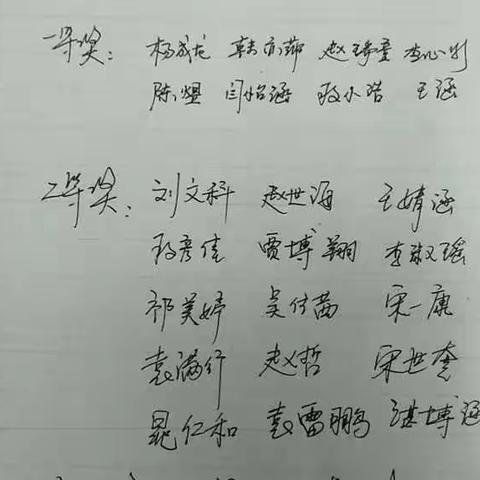 一等奖: 杨成龙 韩方萍 赵 李心
陈煜 闫怡涵 段小浩 王涵
二等奖: 刘文科 赵世海 王婧涵
段彦佳 贾博翔 李淑瑶
祁美婷 吴付茜 宋一康
袁满行 赵哲 宋世奎
晁仁和 袁雷鹏 湛博涵